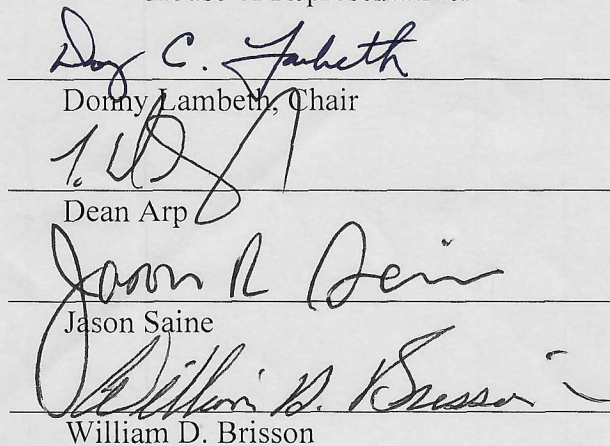 House of Representatives
Donny C. Lambeth
Donny Lambeth, Chair
Dean Arp
Jason R Saine
Jason Saine
William D. Brisson
William D. Brisson